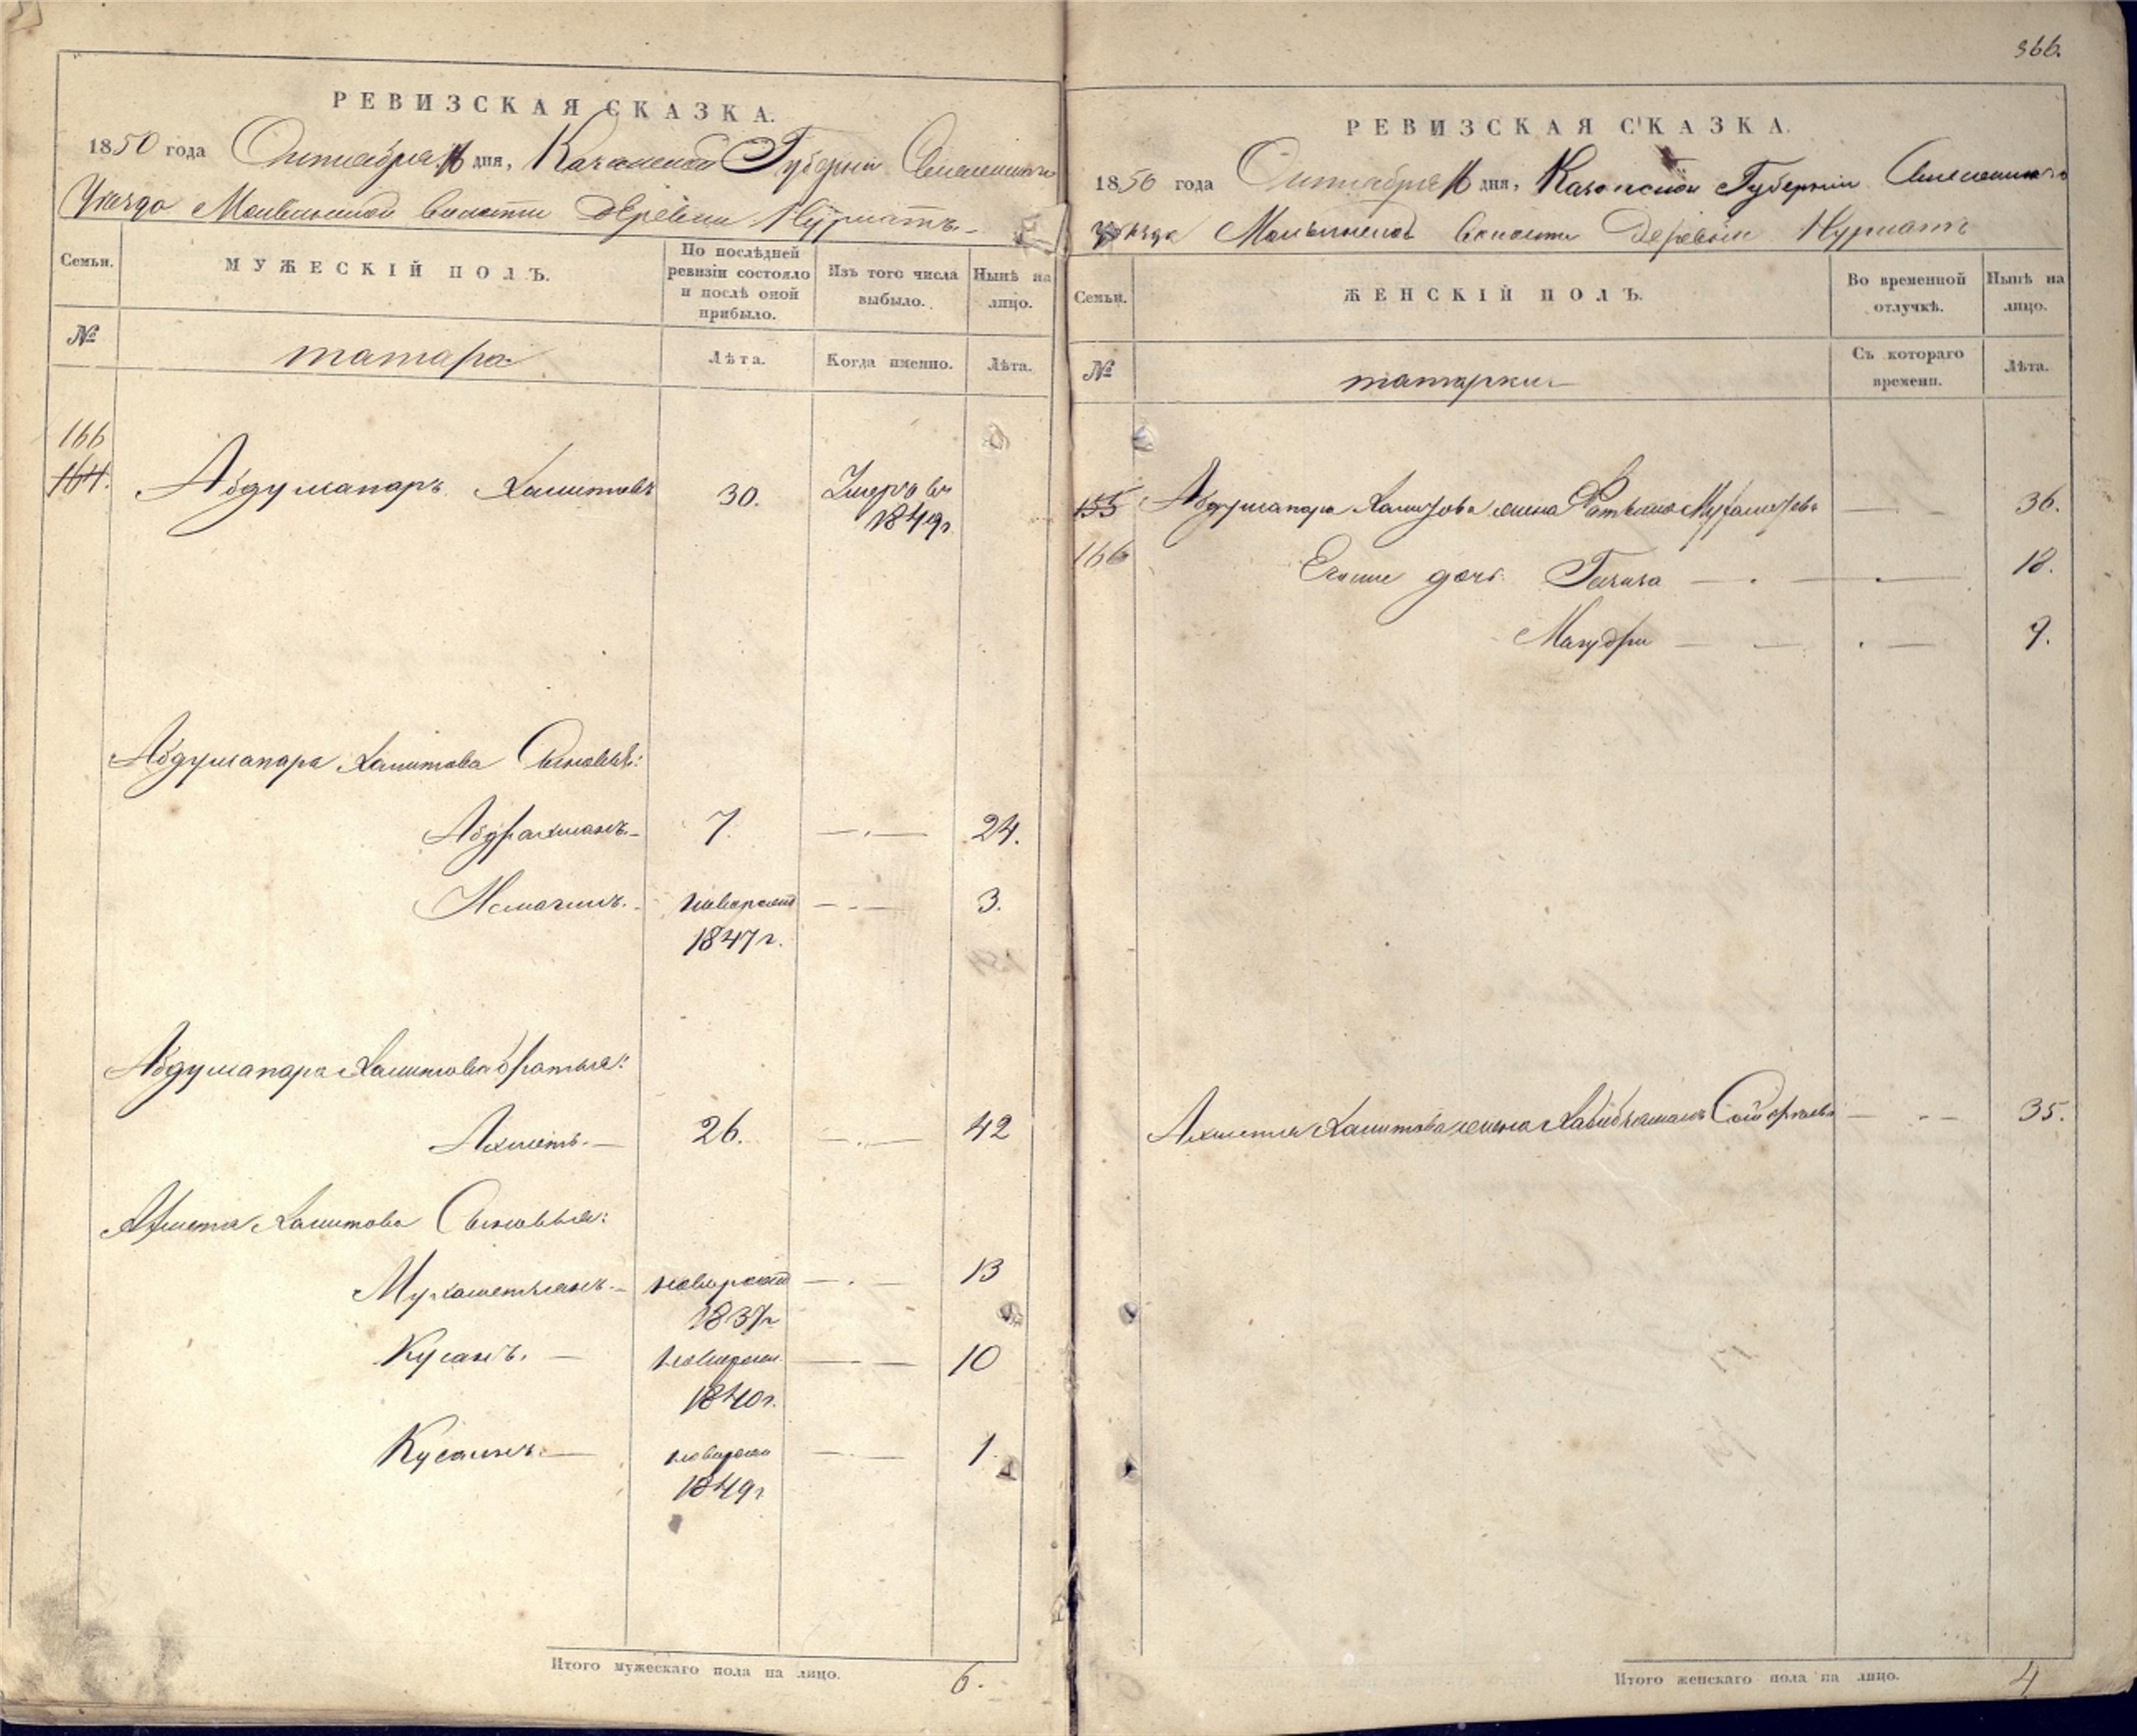 366.
РЕВИЗСКАЯ СКАЗКА.
1850 года Октября 16 дня, Казанской Губернии
Уезда волости деревни Нурматъ
Семьи.
МУЖЕСКІЙ ПОЛЪ.
По послѣдней ревизіи состояло и послѣ оной прибыло.
Изъ того числа выбыло.
Нынѣ на лицо.
№
татара
Лѣта.
Когда именно.
Лѣта.
166
164. Абдулгапаръ Хамитовъ 30. Умеръ въ
1849г.
Абдулгапара Хамитова Сыновья:
Абдрахманъ 7. 24.
Исмагилъ новорожд 3.
1847г.
Абдулгапара Хамитова братья:
Ахметъ 26. 42
Ахмета Хамитова Сыновья:
Мухаметзянъ новорожд 13
1837г
Хусаинъ. новорожд 10
1840г.
новорожд 1.
1849г
Итого мужескаго пола на лицо. 6.
РЕВИЗСКАЯ СКАЗКА.
1850 года Октября 16 дня, Казанской Губерніи
уезда волости деревни Нурматъ
Семьи.
ЖЕНСКІЙ ПОЛЪ.
Во временной отлучкѣ.
Нынѣ на лицо.
№
татарки
Съ котораго времени.
Лѣта.
155 Абдулгапара Хамитова жена 36.
166 дочь Газиза 18.
9.
Ахмета Хамитова жена 35.
Итого женскаго пола на лицо. 4